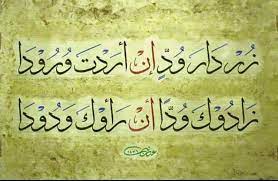 زُرْ دَارَ وُدٍّ إِنْ أَرَدْتَ وُرُودَا
زَادُوكَ وُدًّا إِنْ رَأَوْكَ وَدُودَا